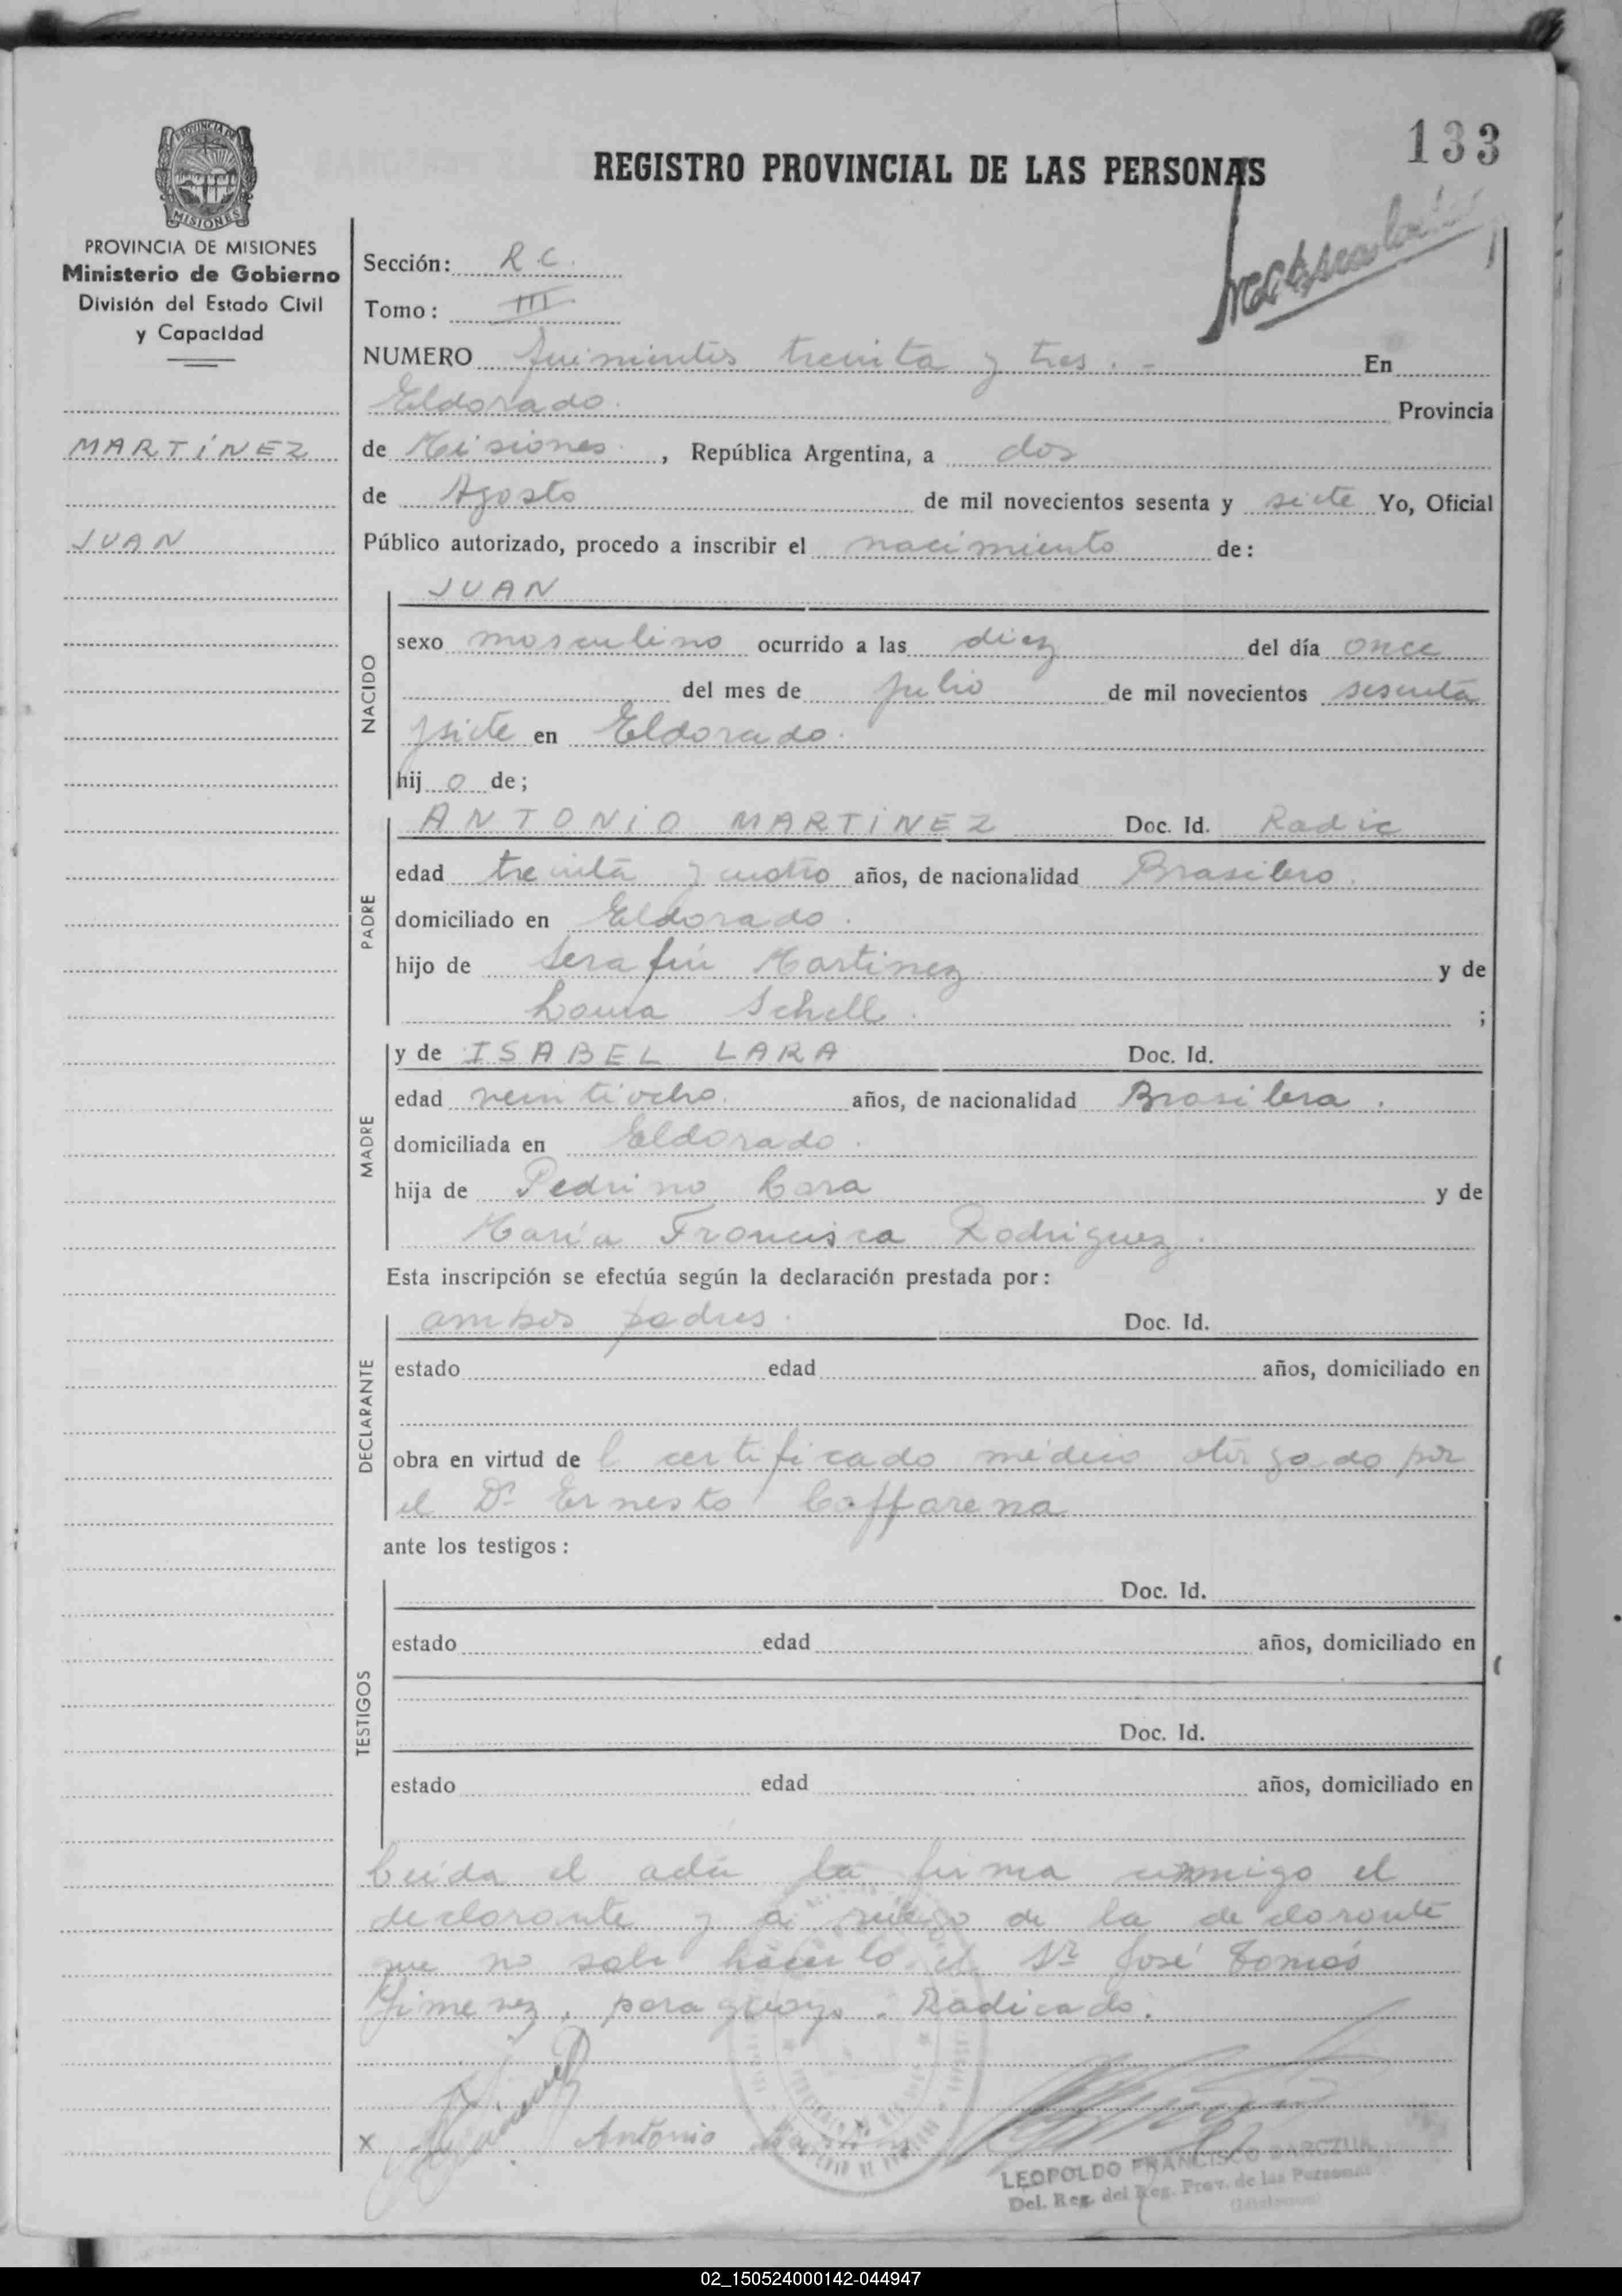 133
REGISTRO PROVINCIAL DE LAS PERSONAS
PROVINCIA DE
MISIONES
PROVINCIA DE MISIONES
Ministerio de Gobierno
División del Estado Civil
y Capacidad
MARTÍNEZ
JUAN
Sección: R.C.
Tomo: III
NUMERO quinientos treinta y tres.- En
Eldorado. Provincia
de Misiones, República Argentina, a dos
de Agosto de mil novecientos sesenta y siete Yo, Oficial
Público autorizado, procedo a inscribir el nacimiento de:
NACIDO
JUAN
sexo masculino ocurrido a las diez del día once
del mes de Julio de mil novecientos sesenta
y siete en Eldorado.
hijo de;
PADRE
ANTONIO MARTINEZ Doc. Id. Radic
edad treinta y cuatro años, de nacionalidad Brasilero.
domiciliado en Eldorado.
hijo de Serafín Martinez y de
Laura Schell. ;
MADRE
y de ISABEL LARA Doc. Id.
edad veintiocho. años, de nacionalidad Brasilera.
domiciliada en Eldorado.
hija de Pedrino Lara y de
María Francisca Rodriguez.
Esta inscripción se efectúa según la declaración prestada por:
DECLARANTE
ambos padres. Doc. Id.
estado edad años, domiciliado en
obra en virtud del certificado médico otorgado por
el Dr Ernesto Caffarena
ante los testigos:
TESTIGOS
Doc. Id.
estado edad años, domiciliado en
Doc. Id.
estado edad años, domiciliado en
Leída el acta la firma conmigo el
declarante y a ruego de la declarante
que no sabe hacerlo el Sr José Tomás
Gimenez, paraguayo. Radicado.
x Antonio
LEOPOLDO FRANCISCO BARCZUK
Del. Reg. del Reg. Prov. de las Personas
02_150524000142-044947